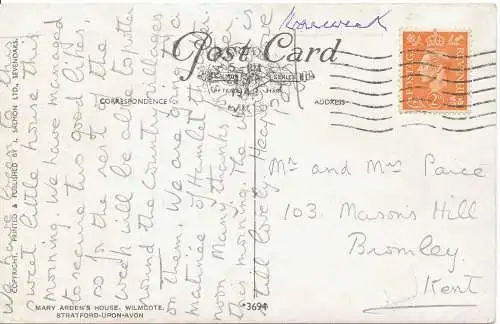 Roseweek
Post Card
CORRESPONDENCE
ADDRESS
COPYRIGHT. PRINTED & PUBLISHED BY J. SALMON LTD., SEVENOAKS.
We have been to this
sweet little house this
morning. We have managed
to secure two good 'lifts'
so for the rest of the
week will be able to potter
round the country villages
on them. We are going to a
matinée of Hamlet this after
noon. Many thanks for
this morning. The
still lovely. Heaps
love
Mr and Mrs Paice
103. Mason's Hill
Bromley
Kent
MARY ARDEN'S HOUSE, WILMCOTE.
STRATFORD-UPON-AVON
*3694